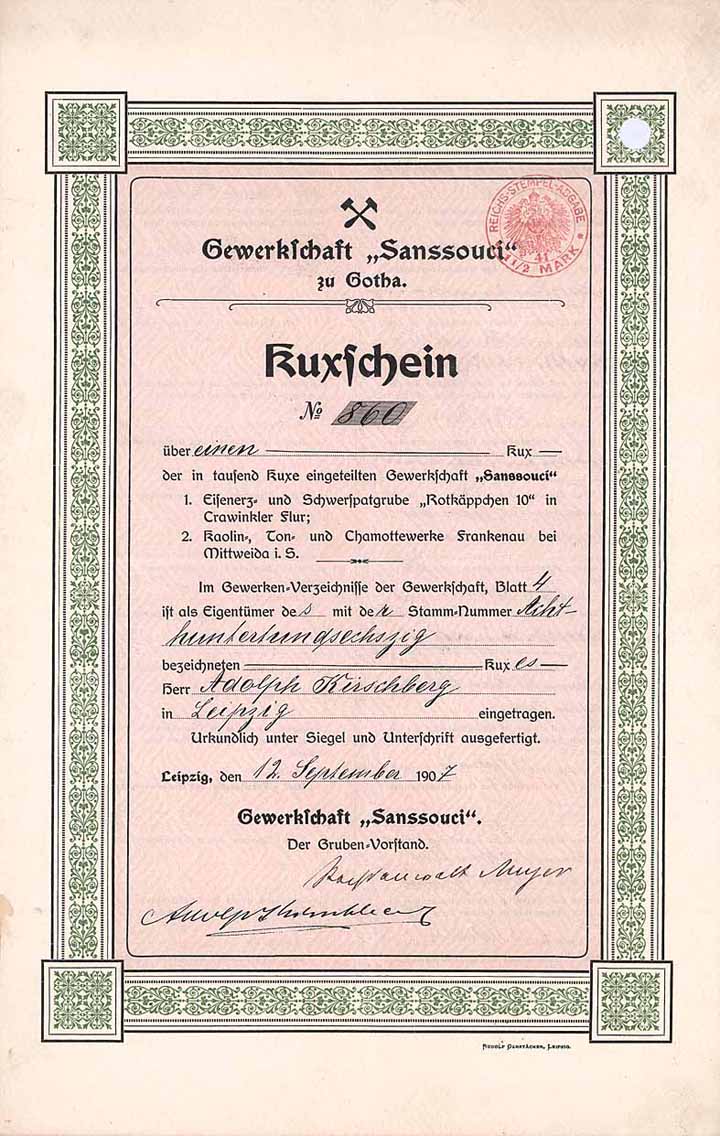 Gewerkſchaft „Sansſouci“
zu Gotha.
REICHS-STEMPEL-ABGABE
41
1 1/2 MARK
Kuxſchein
№ 860
über einen Kux
der in tauſend Kuxe eingeteilten Gewerkſchaft „Sansſouci“
1. Eiſenerz- und Schwerſpatgrube „Rotkäppchen 10“ in
Crawinkler Flur;
2. Kaolin-, Ton- und Chamottewerke Frankenau bei
Mittweida i. S.
Im Gewerken-Verzeichniſſe der Gewerkſchaft, Blatt 4
iſt als Eigentümer des mit der Stamm-Nummer Acht-
hundertundsechszig
bezeichneten Kuxes
Herr Adolph Kirschberg
in Leipzig eingetragen.
Urkundlich unter Siegel und Unterſchrift ausgefertigt.
Leipzig, den 12. September 1907
Gewerkſchaft „Sansſouci“.
Der Gruben-Vorſtand.
Rechtsanwalt Meyer
RUDOLF GERSTÄCKER, LEIPZIG.